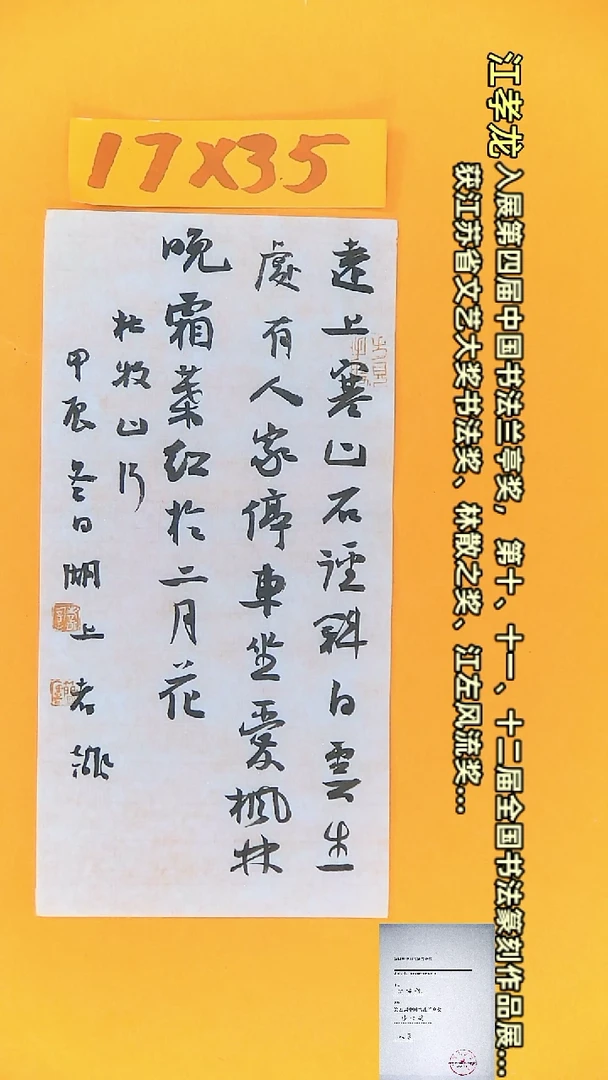 江孝龙 入展第四届中国书法兰亭奖，第十、十一、十二届全国书法篆刻作品展...
获江苏省文艺大奖书法奖、林散之奖、江左风流奖...
17X35
遠上寒山石徑斜白雲生
處有人家停車坐愛楓林
晚霜葉紅於二月花
杜牧山行
甲辰冬日